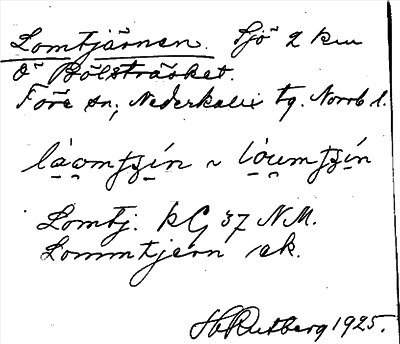 Lomtjärnen. Sjö 2 km
Ö Bölsträsket.
Töre sn; Nederkalix tg. Norrb l.
Lomtj. kG 37 NM.
Lommtjern ek.
Rutberg 1925.